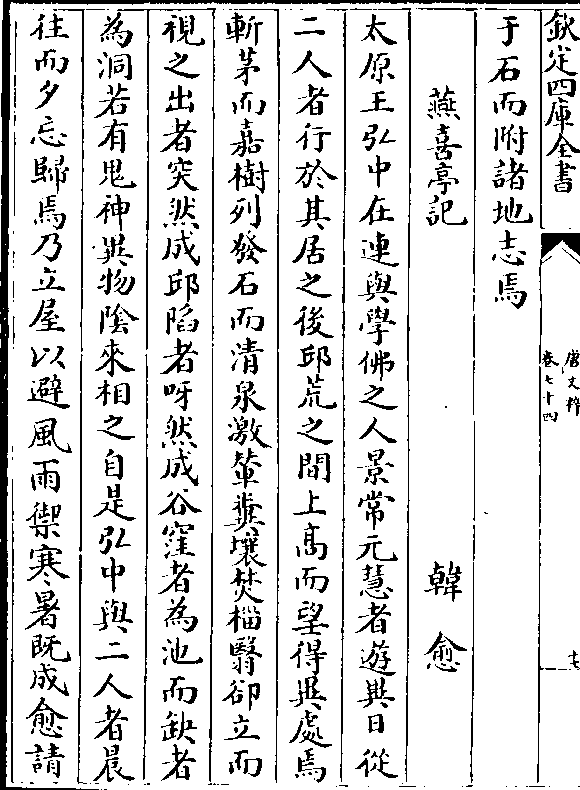 欽定四庫全書
唐文粹
卷七十四
于石而附諸地志焉
燕喜亭記 韓愈
太原王弘中在連與學佛之人景常元慧者遊異日從
二人者行於其居之後邱荒之間上高而望得異處焉
斬茅而嘉樹列發石而清泉激輦糞壤焚椔翳卻立而
視之出者突然成邱陷者呀然成谷窪者為池而缺者
為洞若有鬼神異物陰來相之自是弘中與二人者晨
往而夕忘歸焉乃立屋以避風雨禦寒暑既成愈請